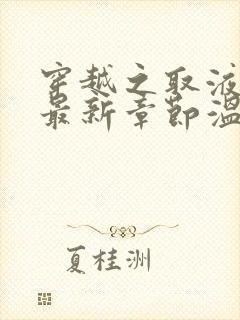 穿越之取液
最新章节温
夏桂洲